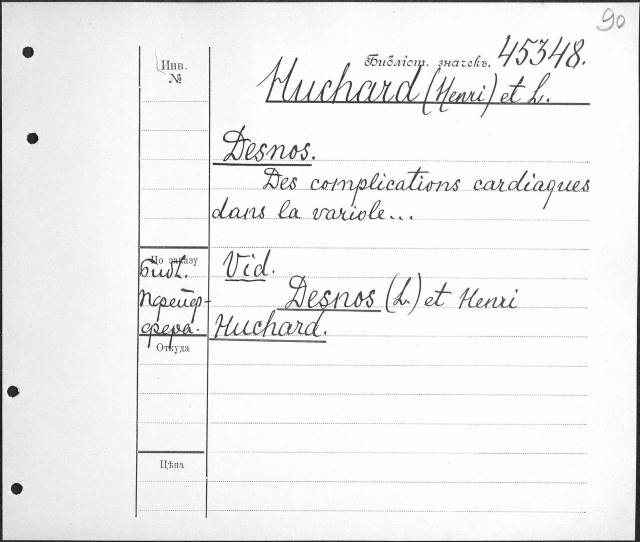 90
Инв.
№
Библіот. значекъ. 45348.
Huchard (Henri) et L.
Desnos.
Des complications cardiaques
dans la variole...
По заказу
Библ.
Пфейф-
фера.
Vid.
Desnos (L.) et Henri
Huchard.
Откуда
Цѣна